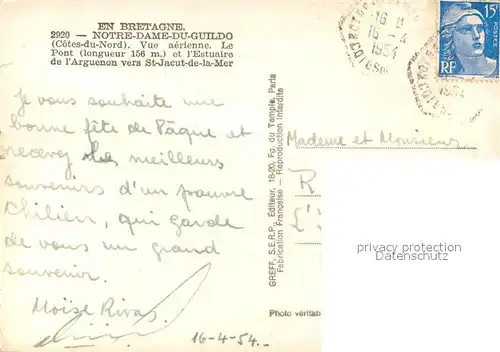 EN BRETAGNE.
2920 — NOTRE-DAME-DU-GUILDO
(Côtes-du-Nord). Vue aérienne. Le
Pont (longueur 156 m.) et l'Estuaire
de l'Arguenon vers St-Jacut-de-la-Mer
Je vous souhaite une
bonne fête de Pâque et
recevez les meilleurs
souvenirs d'un pauvre
Chilien, qui garde
de vous un grand
souvenir.
Moïse Rivas
16-4-54.-
GREFF, S.E.R.P., Éditeur, 18-20, Fg. du Temple, Paris
Fabrication Française — Reproduction Interdite
Photo véritab
16 H
16 - 4
1954
15F
POSTES
RF
1954
Madame et Monsieur
R
L'
privacy protection
watermark